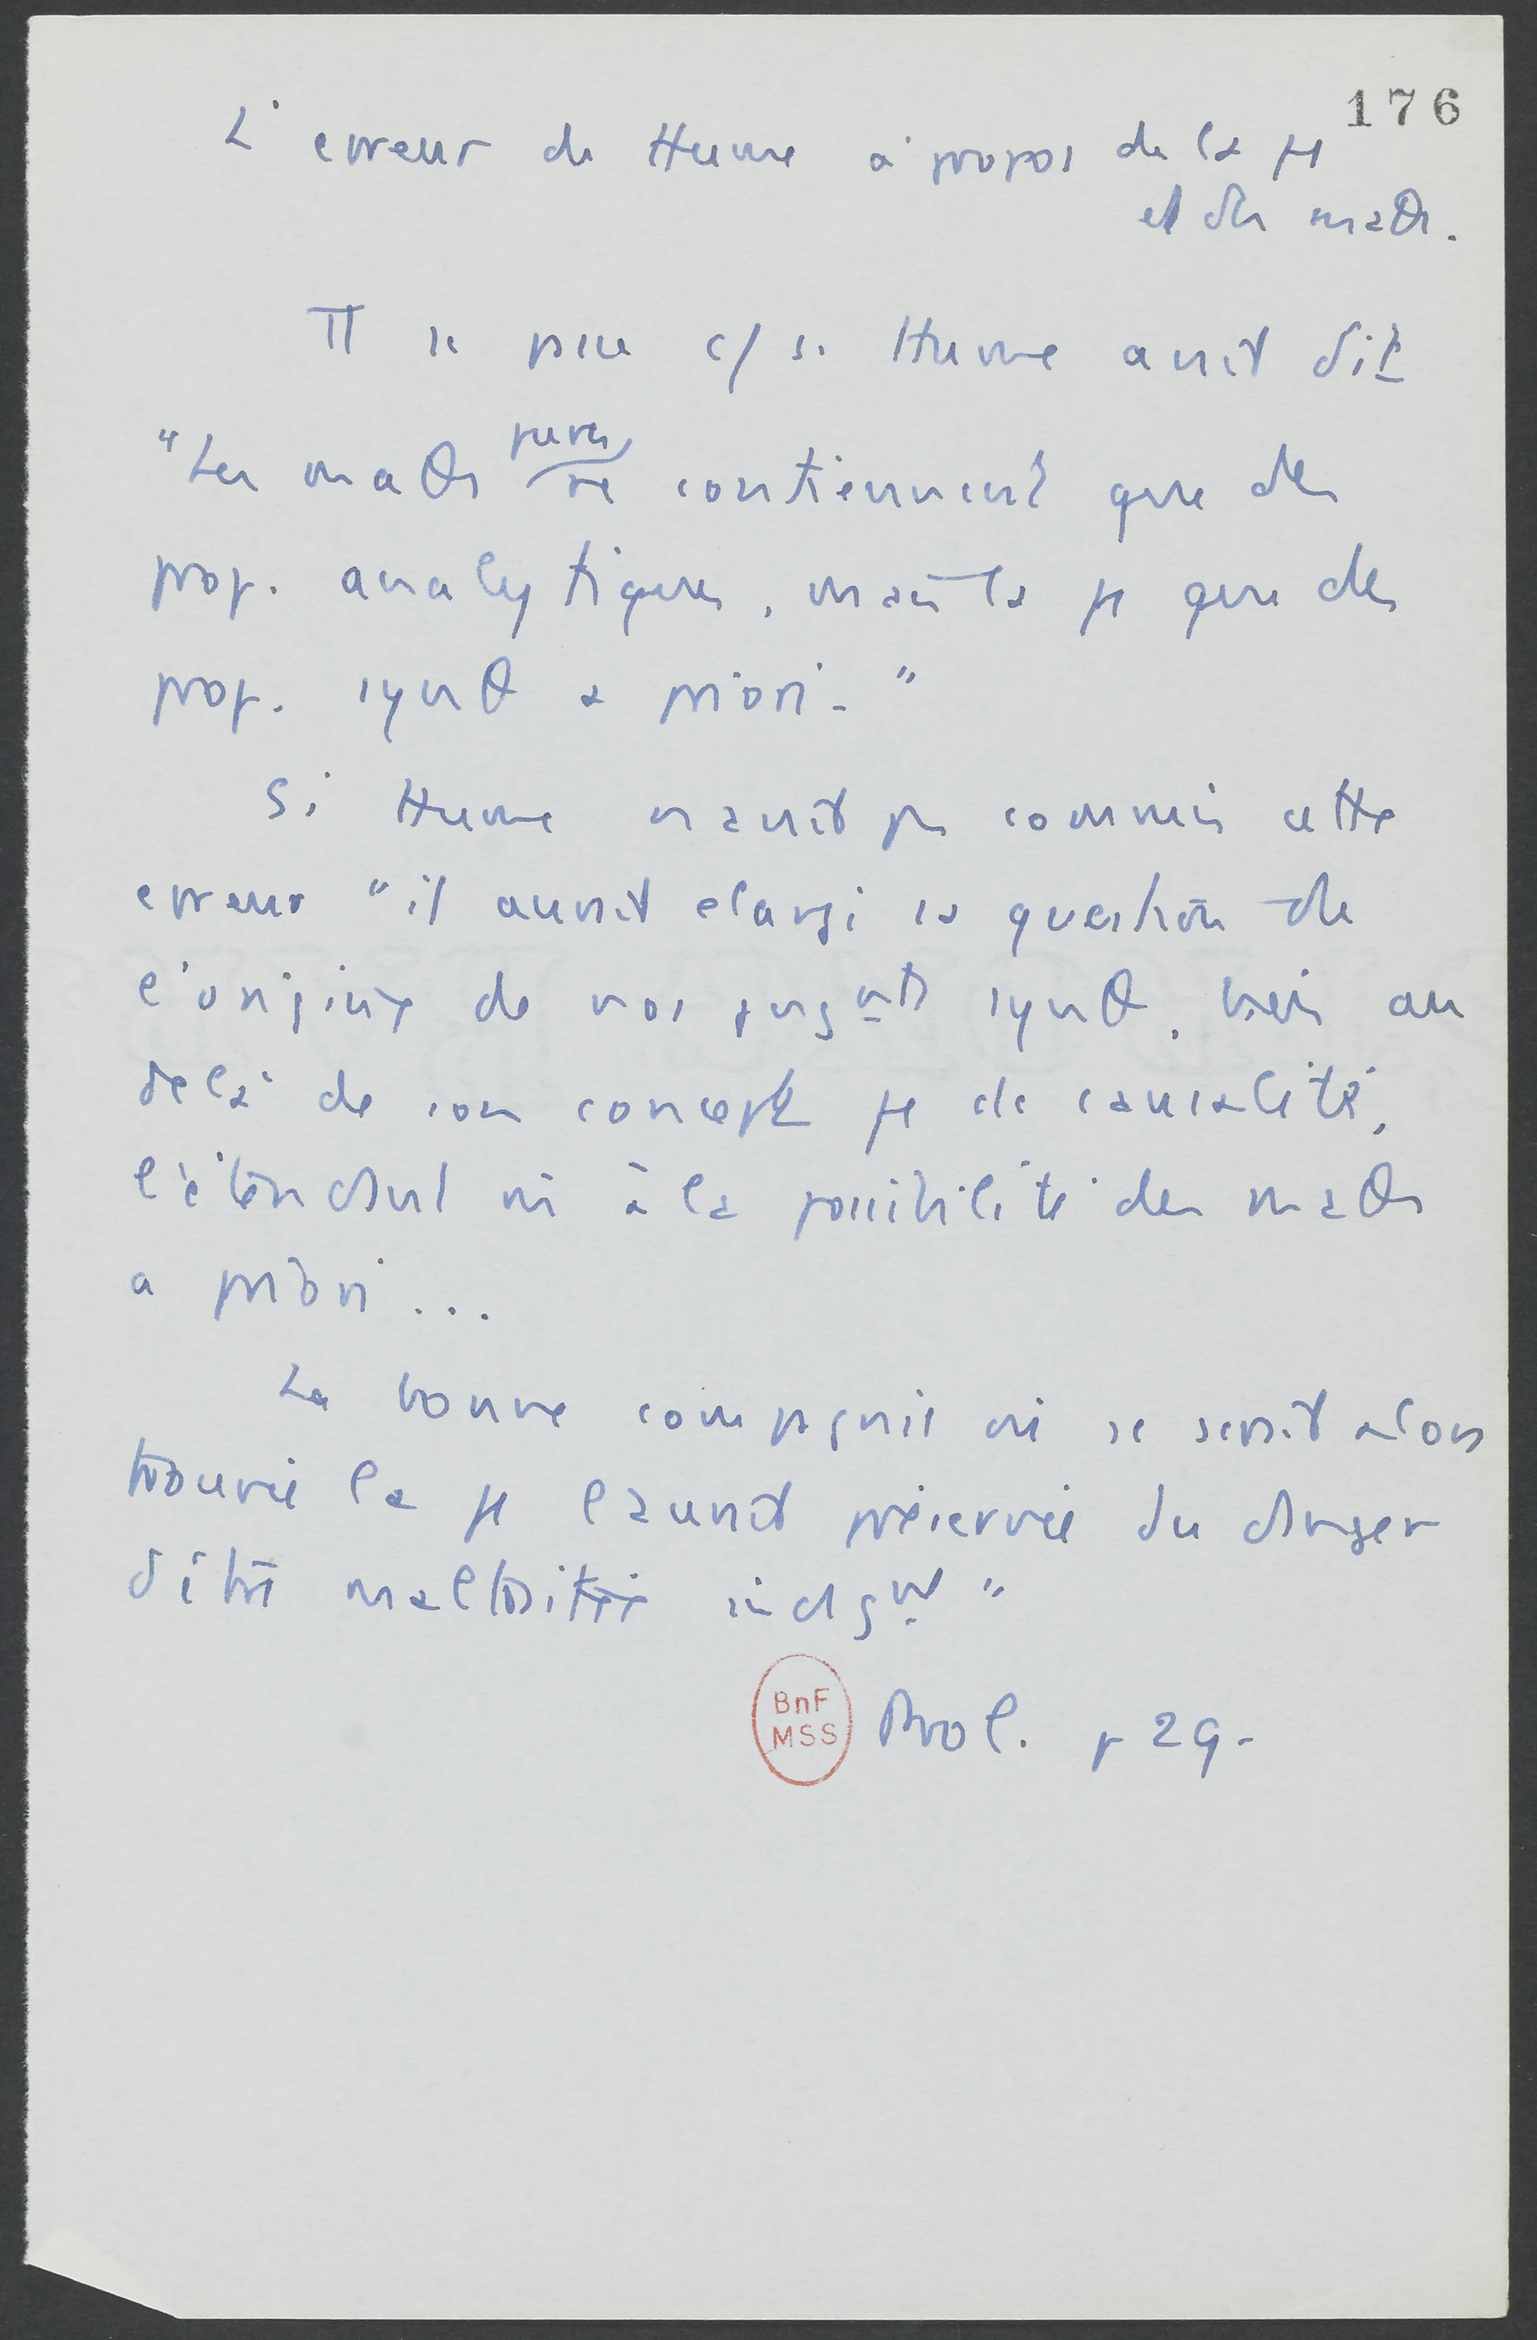 176
L'erreur de Hume à propos de la φ
et des maθ.
Tt se passe c/ si Hume avait dit
"Les maθ pures ne contiennent que des
prop. analytiques, mais la φ que des
prop. synθ a priori."
Si Hume n'avait pas commis cette
erreur "il aurait elargi sa question de
l'origine de nos jugmts synθ, bien au
delà de son concept φ de causalité,
l'étendant m̂ à la possibilité des maθ
a priori ...
La bonne compagnie où se serait alors
trouvée la φ l'aurait préservée du danger
d'être maltraitée indgmt"
BnF
MSS
Prol. p 29.